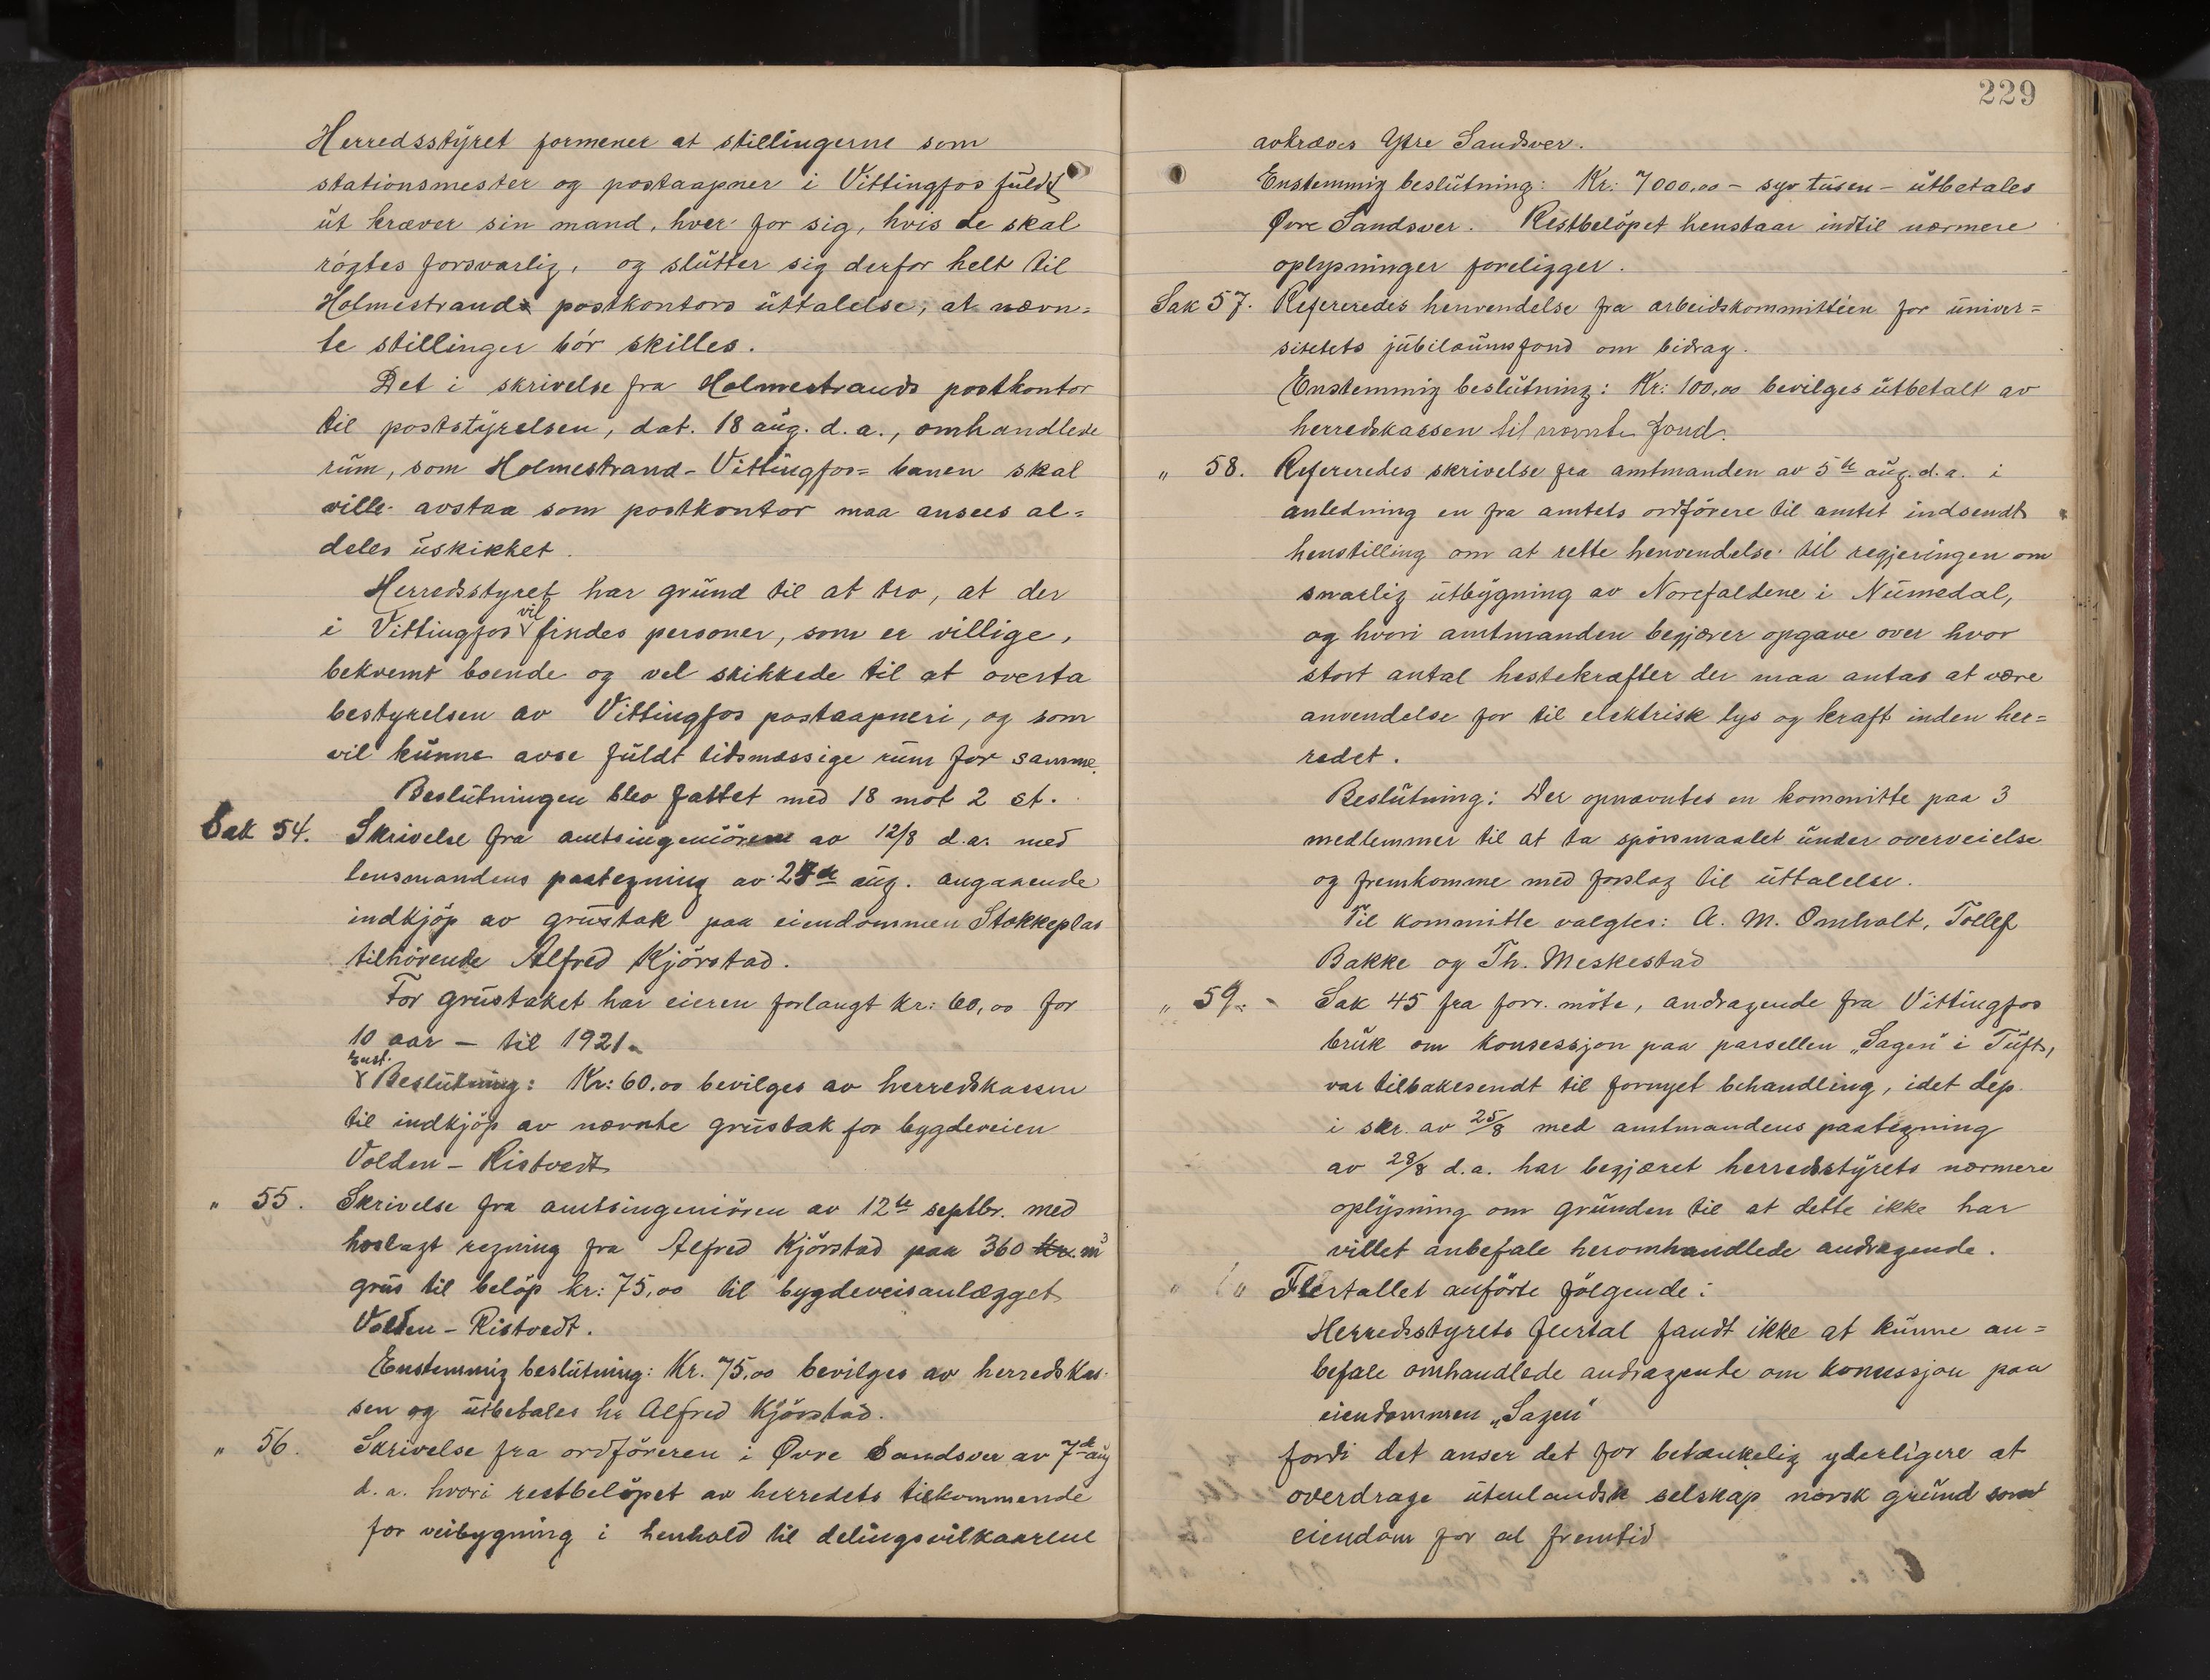 Herredsstyret formener at stillingerne som
stationsmester og postaapner i Vittingfos fuldt
ut kræver sin mand, hver for sig, hvis de skal
røgtes forsvarlig, og slutter sig derfor helt til
Holmestrands postkontors uttalelse, at nævn=
te stillinger bör skilles.
Det i skrivelse fra Holmestrands postkontor
til poststyrelsen, dat. 18 aug. d.a., omhandlede
rum, som Holmestrand-Vittingfos= banen skal
ville avstaa som postkontor maa ansees al=
deles uskikket.
Herredsstyret har grund til at tro, at der
i Vittingfos vil findes personer, som er villige,
bekvemt boende og vel skikkede til at overta
bestyrelsen av Vittingfos postaapneri, og som
vil kunne avse fuldt tidsmæssige rum for samme.
Beslutningen blev fattet med 18 mot 2 st.
Sak 54. Skrivelse fra amtsingeniören av 12/8 d.a. med
lensmandens paategning av aug. angaaende
indkjöp av grustak paa eiendommen Stokkeplas
tilhörende Alfred Kjörstad.
For grustaket har eieren forlangt kr: 60,00 for
10 aar – til 1921.
Enst. Beslutning: Kr: 60,00 bevilges av herredskassen
til indkjöp av nævnte grustak for bygdeveien
Volden – Ristvedt
" 55. Skrivelse fra amtsingeniören av 12te septbr. med
hoslagt regning fra Alfred Kjörstad paa 360 kr. m³
grus til belöp kr: 75,00 til bygdeveisanlægget
Volden – Ristvedt.
Enstemmig beslutning: Kr. 75,00 bevilges av herredskas-
sen og utbetales hr Alfred Kjörstad.
" 56. Skrivelse fra ordföreren i Øvre Sandsver av 7de aug
d.a. hvori restbelöpet av herredets tilkommende
for veibygning i henhold til delingsvilkaarene
229
avkræves Ytre Sandsver.
Enstemmig beslutning: Kr: 7000,00 – syv tusen – utbetales
Øvre Sandsver. Restbelöpet henstaar indtil nærmere
oplysninger foreligger.
Sak 57. Refereredes henvendelse fra arbeidskommittéen for univer=
sitetets jubilæumsfond om bidrag.
Enstemmig beslutning: Kr: 100,00 bevilges utbetalt av
herredskassen til nævnte fond.
" 58. Refereredes skrivelse fra amtmanden av 5te aug. d.a. i
anledning en fra amtets ordförere til amtet indsendt
henstilling om at rette henvendelse til regjeringen om
snarlig utbygning av Norefaldene i Numedal,
og hvori amtmanden begjærer opgave over hvor
stort antal hestekræfter der maa antas at være
anvendelse for til elektrisk lys og kraft inden her=
redet.
Beslutning: Der opnævntes en kommitte paa 3
medlemmer til at ta spörsmaalet under overveielse
og fremkomme med forslag til uttalelse.
Til kommitte valgtes: A. M. Omholt, Tollef
Bakke og Th. Meskestad
" 59. Sak 45 fra forr. möte, andragende fra Vittingfos
bruk om konsessjon paa parsellen „Sagen" i Tuft,
var tilbakesendt til fornyet behandling, idet dep.
i skr. av 25/8 med amtmandens paategning
av 28/8 d.a. har begjæret herredsstyrets nærmere
oplysning om grunden til at dette ikke har
villet anbefale heromhandlede andragende.
Flertallet anförte fölgende:
Herredsstyrets flertal fandt ikke at kunne an=
befale omhandlede andragende om konsessjon paa
eiendommen „Sagen"
fordi det anser det for betænkelig yderligere at
overdrage utenlandsk selskap norsk grund som
eiendom for al fremtid